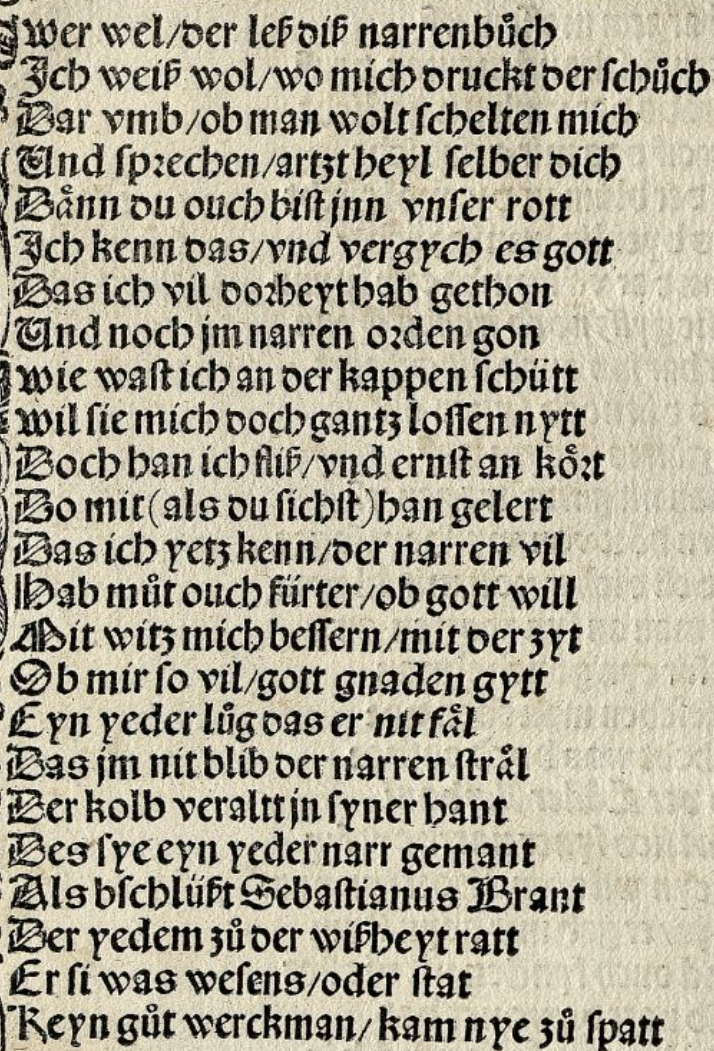 Wer wel/der leß diß narrenbůch
Ich weiß wol/wo mich druckt der schůch
Dar vmb/ob man wolt schelten mich
Und sprechen/artzt heyl selber dich
Dånn du ouch bist jnn vnser rott
Ich kenn das/vnd vergych es gott
Das ich vil dorheyt hab gethon
Und noch jm narren orden gon
Wie vast ich an der kappen schütt
Wil sie mich doch gantz lossen nytt
Doch han ich fliß/vnd ernst an kört
Do mit (als du sichst) han gelert
Das ich yetz kenn/der narren vil
Hab můt ouch fürter/ob gott will
Mit witz mich bessern/mit der zyt
Ob mir so vil/gott gnaden gytt
Eyn yeder lůg das er nit fål
Das jm nit blib der narren strål
Der kolb veraltt jn syner hant
Des sye eyn yeder narr gemant
Als bschlüßt Sebastianus Brant
Der yedem zů der wißheyt ratt
Er si was wesens/oder stat
Keyn gůt werckman/kam nye zů spatt